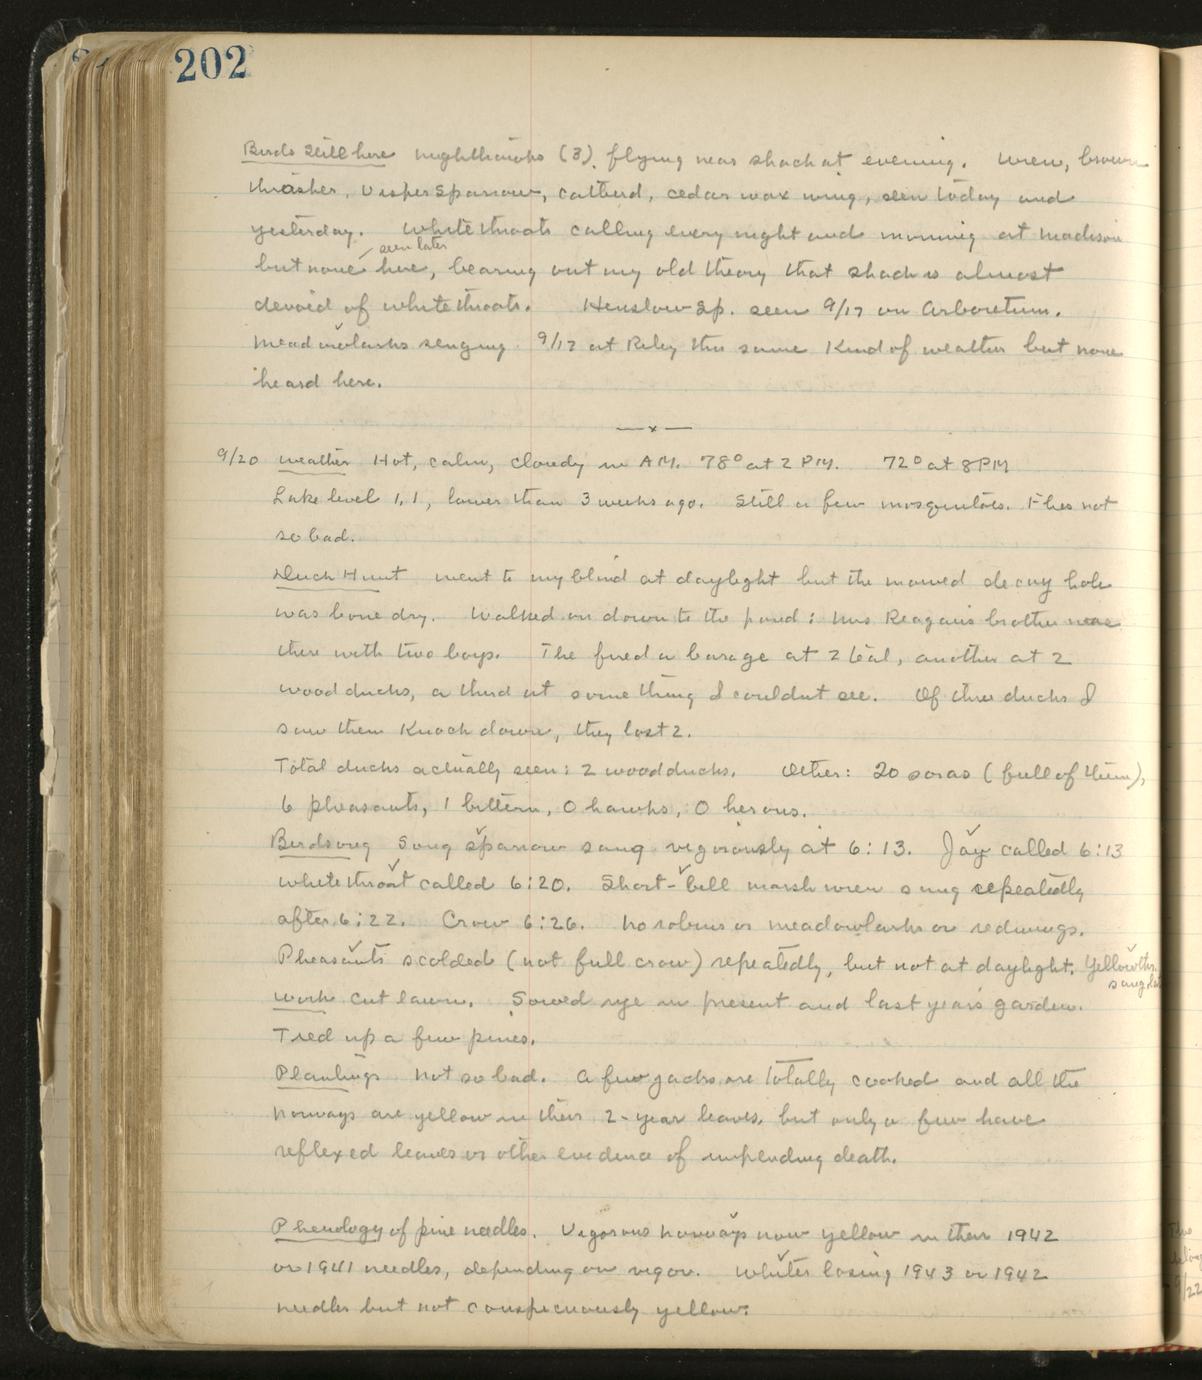 202
Birds still here nighthawks (3) flying near shack at evening. Wren, brown
thrasher, vesper sparrow, catbird, cedar wax wing, seen today and
yesterday. Whitethroats calling every night and morning at Madison
seen later
but none here, bearing out my old theory that shack is almost
devoid of whitethroats. Henslow Sp. seen 9/17 on Arboretum.
Meadowlarks singing 9/17 at Riley this same kind of weather but none
heard here.
—x—
9/20 Weather Hot, calm, cloudy in AM. 78° at 2 PM. 72° at 8PM
Lake level 1.1, lower than 3 weeks ago. Still a few mosquitoes. Flies not
so bad.
Duck Hunt went to my blind at daylight but the mowed decoy hole
was bone dry. Walked on down to the pond; Mrs Reagan's brother was
there with two boys. The fired a barage at 2 teal, another at 2
wood ducks, a third at something I couldnt see. Of three ducks I
saw them knock down, they lost 2.
Total ducks actually seen: 2 woodducks. Other: 20 soras (full of them),
6 pheasants, 1 bittern, 0 hawks, 0 herons.
Birdsong Song sparrow sang vigorously at 6:13. Jay called 6:13
Whitethroat called 6:20. Short-bill marsh wren sang repeatedly
after 6:22. Crow 6:26. No robins or meadowlarks or redwings.
Pheasants scolded (not full crow) repeatedly, but not at daylight. Yellowthr.
sang
Work Cut lawn. Sowed rye in present and last years garden.
Tied up a few pines.
Plantings Not so bad. A few jacks are totally cooked and all the
Norways are yellow in their 2-year leaves, but only a few have
reflexed leaves or other evidence of impending death.
Phenology of pine needles. Vigorous Norways now yellow in their 1942
or 1941 needles, depending on vigor. Whites losing 1943 or 1942
needles but not conspicuously yellow.